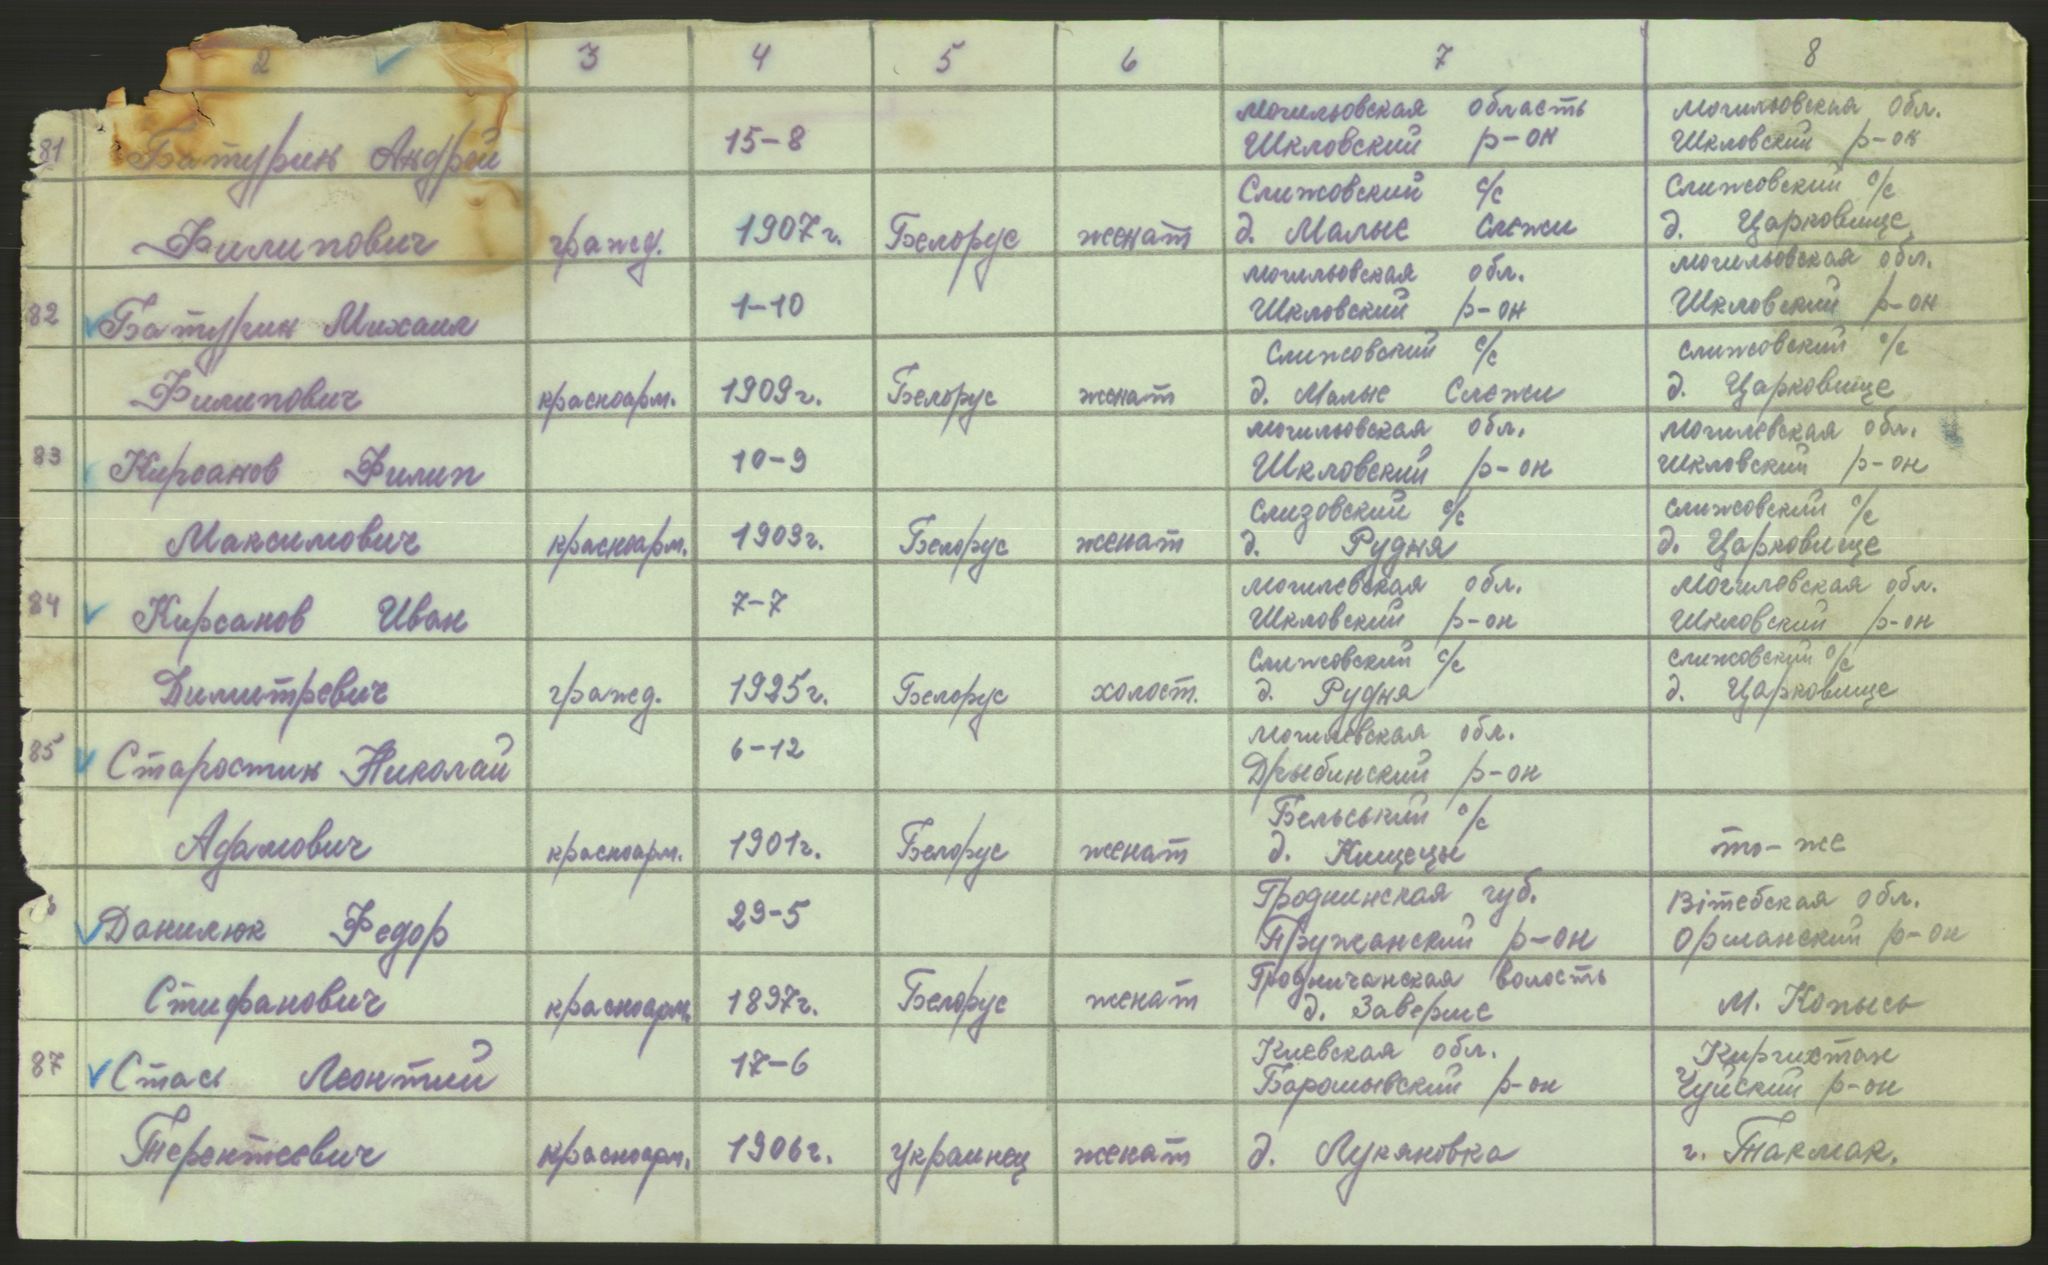 2 3 4 5 6 7 8
Могильовская область Могильовская обл.
81 Батурин Андрей 15-8 Шкловский р-он Шкловский р-он
Слижовский с/с Слижовский с/с
Филипович гражд. 1907г. Белорус женат д. Малые Слежи д. Царковище
Могильовская обл. Могильовская обл.
82 Батурин Михаил 1-10 Шкловский р-он Шкловский р-он
Слижовский с/с Слижовский с/с
Филипович красноарм. 1909г. Белорус женат д. Малые Слежи д. Царковище
Могильовская обл. Могилевская обл.
83 Кирсанов Филип 10-9 Шкловский р-он Шкловский р-он
Слизовский с/с Слижовский с/с
Максимович красноарм. 1909г. Белорус женат д. Рудня д. Царковище
Могилевская обл. Могиловская обл.
84 Кирсанов Иван 7-7 Шкловский р-он Шкловский р-он
Слижовский с/с Слижовский с/с
Димитревич гражд. 1925г. Белорус холост. д. Рудня д. Царковище
Могилевская обл.
85 Старостин Николай 6-12 Дрыбинский р-он
Бельський с/с
Адамович красноарм. 1901г. Белорус женат д. Кищецы то-же
Гроднинская губ. Вітебская обл.
6 Данилюк Федор 29-5 Пружанский р-он Оршанский р-он
Гродничанская волость
Стифанович красноарм. 1897г. Белорус женат д. Заверше м. Копысь
Киевская обл. Киргихтан
87 Стась Леонтий 17-6 Барашывский р-он Чуйский р-он
Терентеевич красноарм. 1906г. украинец женат д. Лукяновка г. Такмак.